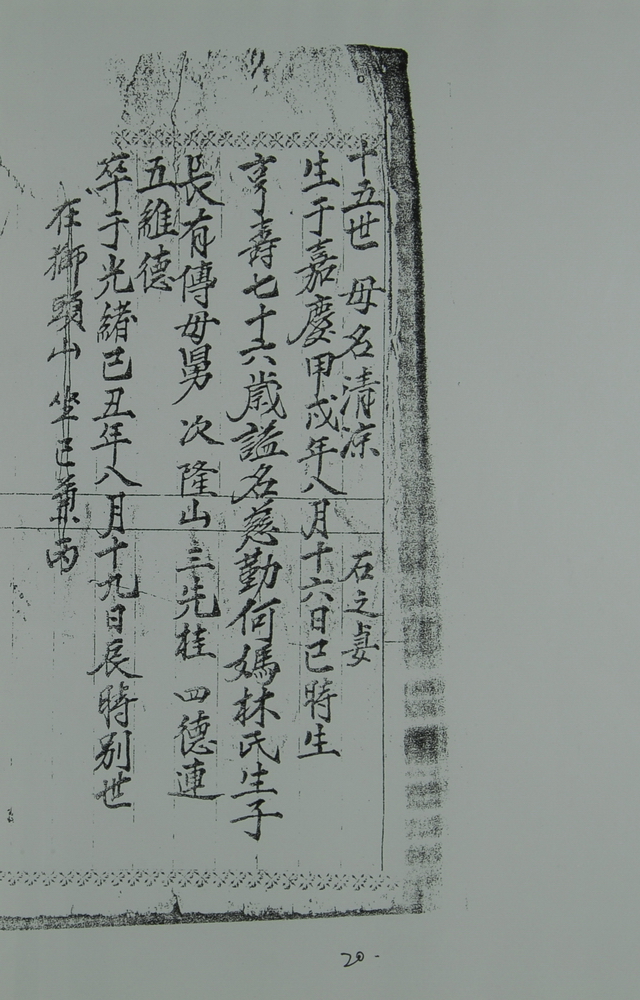 十五世 母名清涼 石之妻
生于嘉慶甲戌年八月十六日巳時生
亨壽七十六歲謚名慈勤何媽林氏生子
長有傳母舅 次隆山 三先桂 四德連
五維德
卒于光緒己丑年八月十九日辰時別世
在獅頭山坐巳兼丙
20-